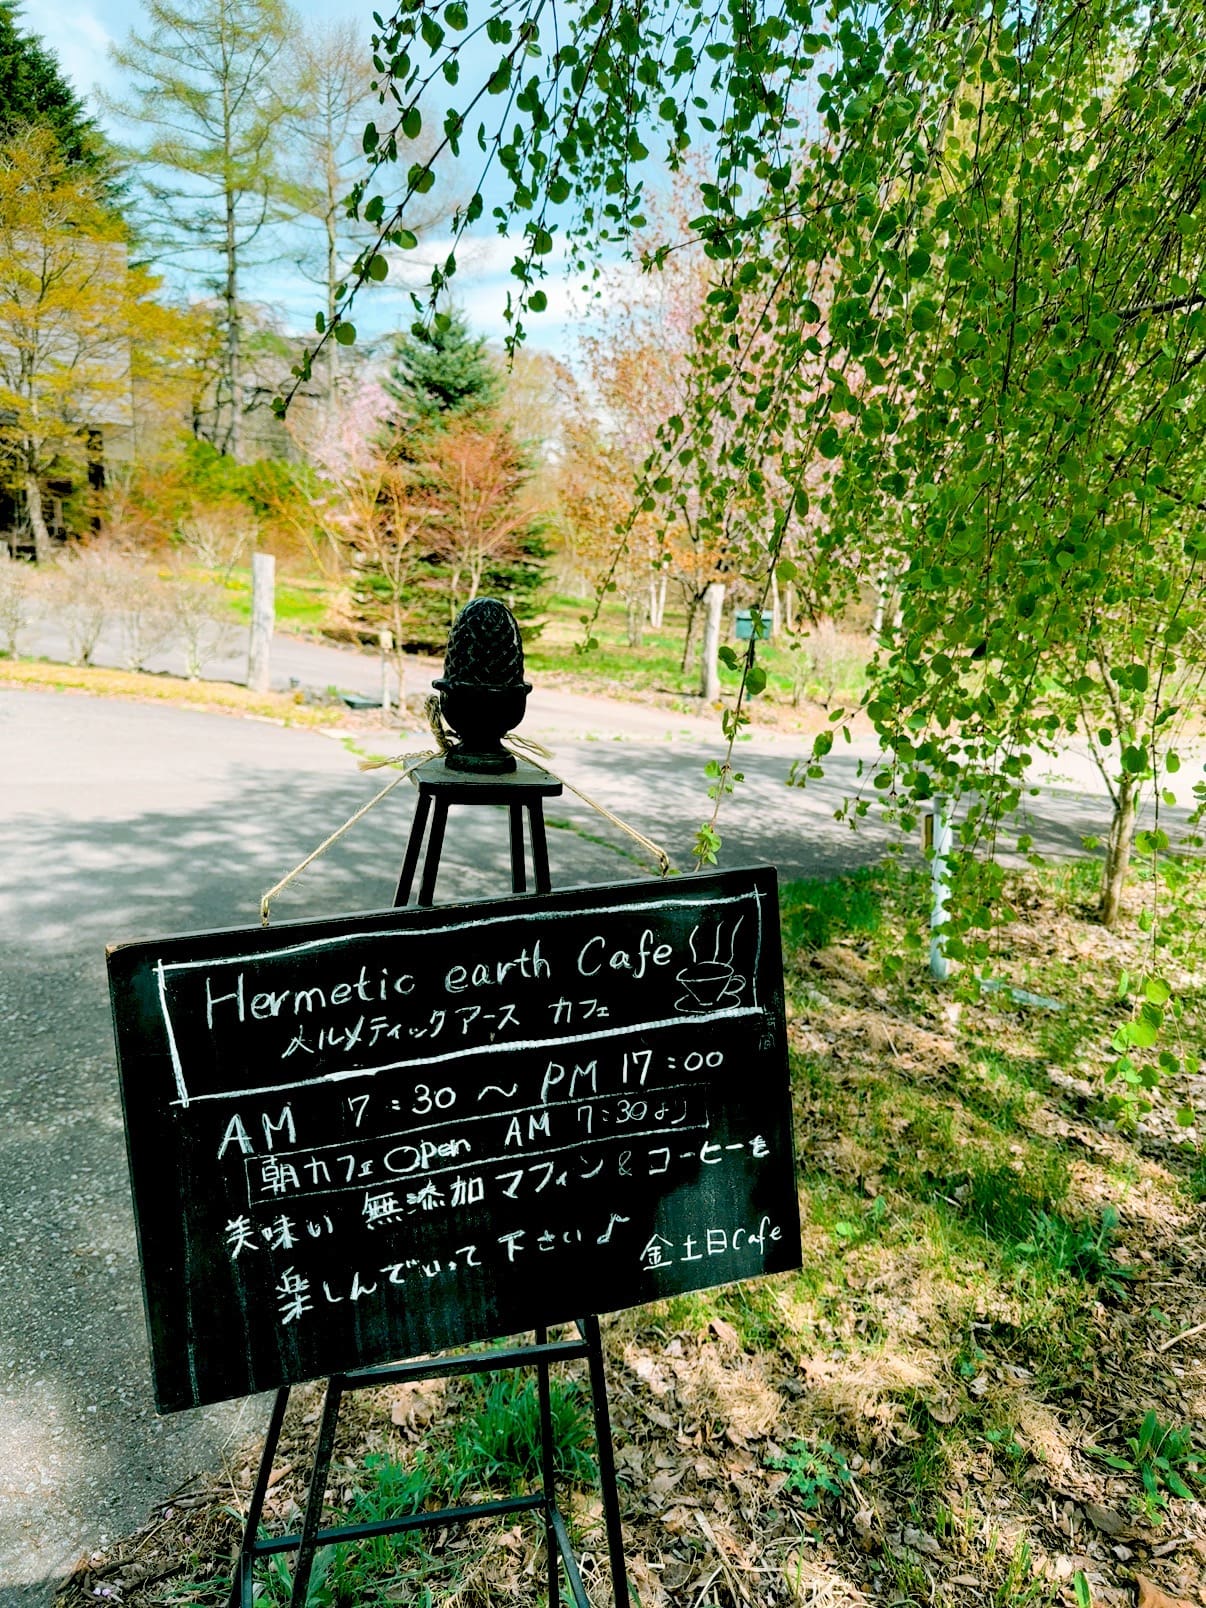 Hermetic earth Cafe
メルメティックアース カフェ
AM 7:30 ~ PM 17:00
朝カフェ Open AM 7:30より
美味い 無添加マフィン & コーヒーを
楽しんでいって下さい♪
金土日Cafe